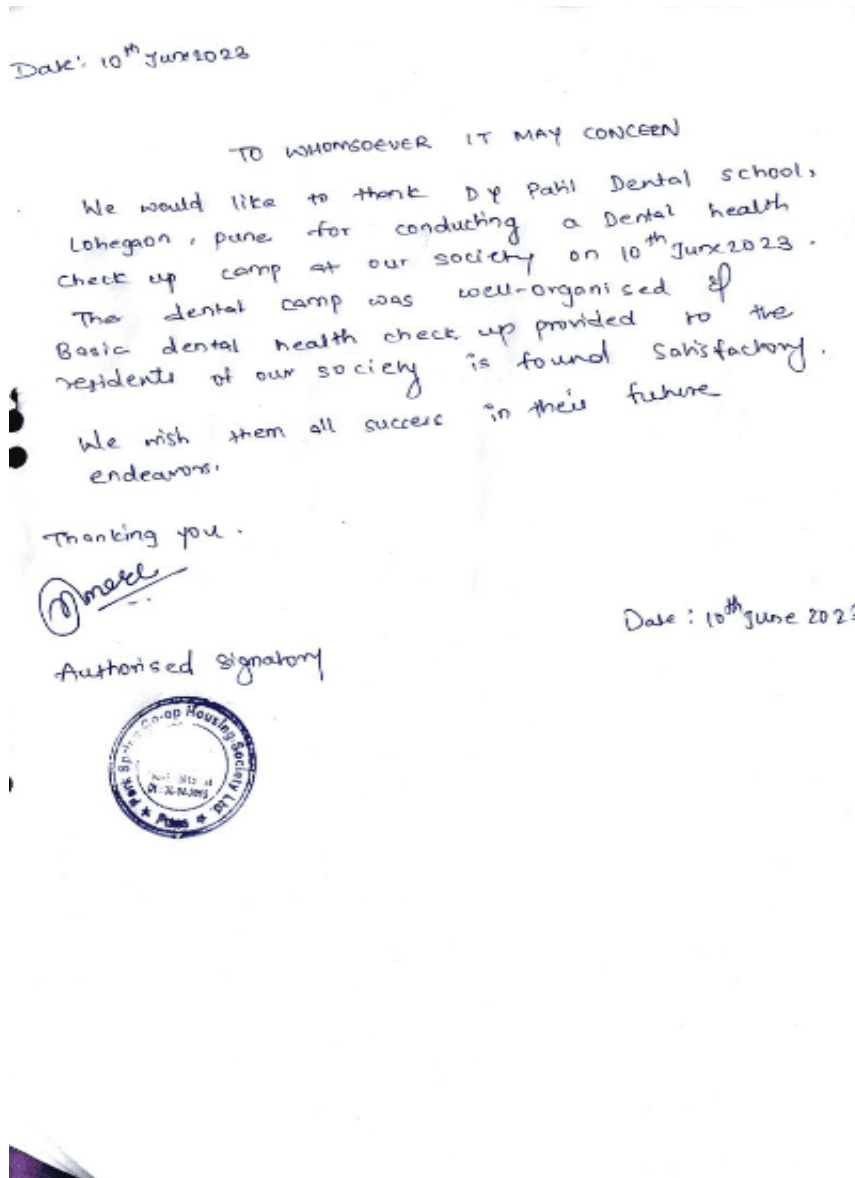 Date: 10th June 2023
TO WHOMSOEVER IT MAY CONCERN
We would like to thank DY Patil Dental school,
Lohegaon, pune for conducting a Dental health
check up camp at our society on 10th June 2023.
The dental camp was well-organised &
Basic dental health check up provided to the
residents of our society is found Satisfactory.
We wish them all success in their future
endeavors.
Thanking you.
Authorised signatory
Date: 10th June 2023
Park Co-op Housing Society Ltd.
★ Pune ★